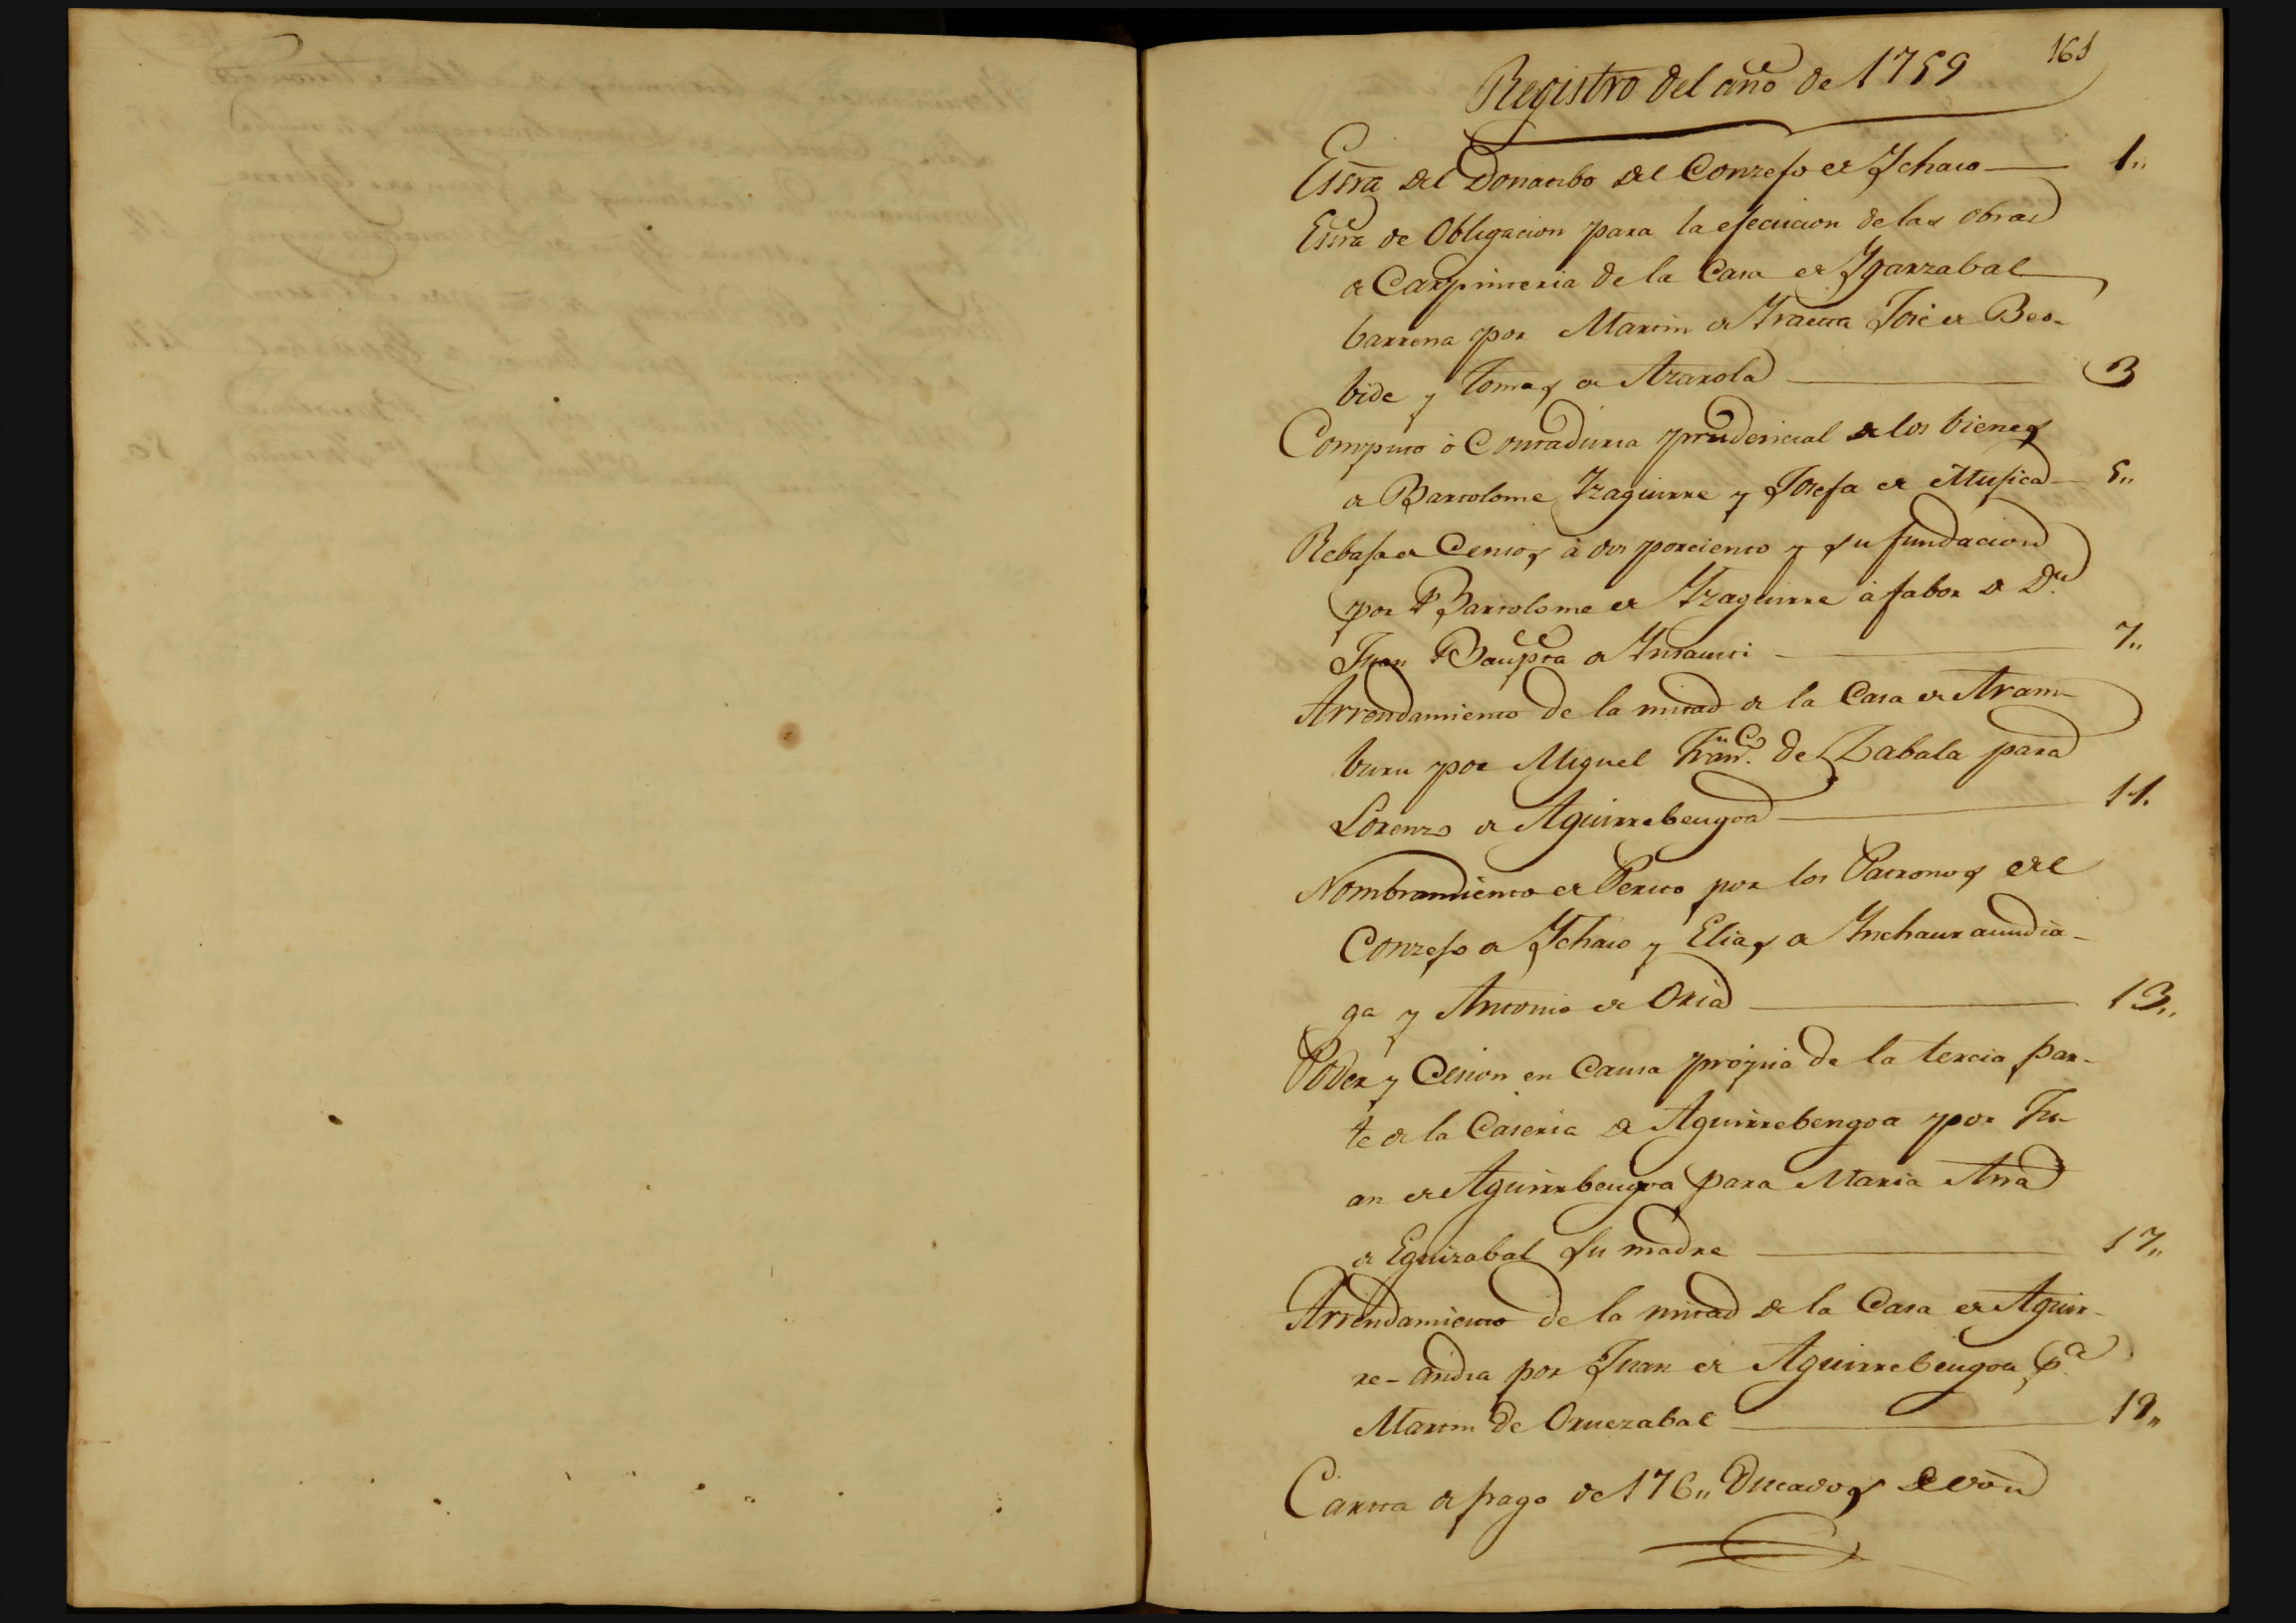 161
Registro del año de 1759
Essra del Donatibo del Conzejo de Ychaso 1,,
Essra de Obligacion para la ejecucion de las obras
de Carpinteria de la Casa de Ygarzabal
barrena por Martin de Yraeta José de Beo-
bide y Tomas de Azarola 3
Computo ò Contaduria prudencial de los bienes
de Bartolome Yzaguirre y Josefa de Mujica 5,,
Rebaja de Censos à dos porciento y su fundacion
por Bartolome de Yzaguirre à fabor de Dn.
Juan Baupta de Ynsausti 7,,
Arrendamiento de la mitad de la Casa de Aram-
buru por Miguel Franco. de Zabala para
Lorenzo de Aguirrebengoa 11.
Nombramiento de Perito por los Patronos del
Conzejo de Ychaso y Elias de Ynchaurraundia-
ga y Antonio de Oria 13,,
Poder y Cesion en Causa própia de la tercia par-
te de la Caseria de Aguirrebengoa por Ju-
an de Aguirrbengoa para Maria Ana
de Eguizabal su madre 17,,
Arrendamiento de la mitad de la Casa de Aguir-
re-andia por Juan de Aguirrebengoa pa.
Martin de Oruezabal 19,,
Carta de pago de 176,, Ducados de von